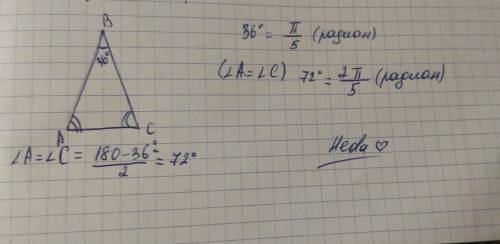 B
36°
A
C
∠A=∠C = (180-36°)/2 = 72°
36° = π/5 (радиан)
(∠A=∠C) 72° = 2π/5 (радиан)
Heda ♡